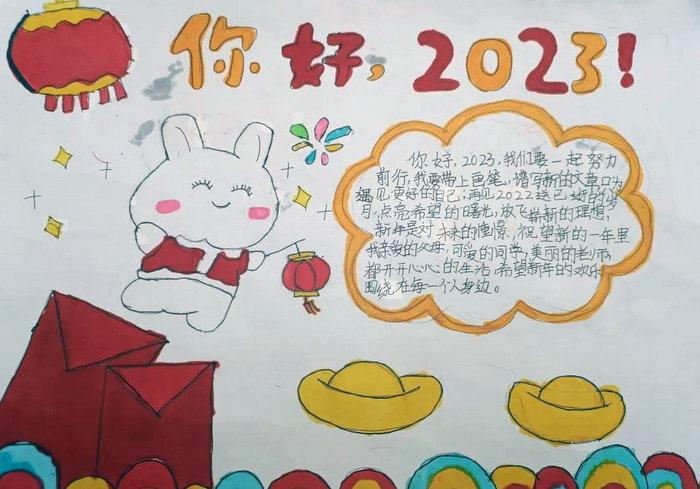 你好，2023！
你好，2023，我们要一起努力
前行，我要带上画笔，谱写新的文章口为
遇见更好的自己；再见2022逝已
月，点亮希望的曙光，放飞崭新的理想，
新年是对未来的憧憬，祝望新的一年里
我亲爱的父母，可爱的同学，美丽的老师，
都开开心心的生活，希望新年的欢乐
围绕在每一个人身边。